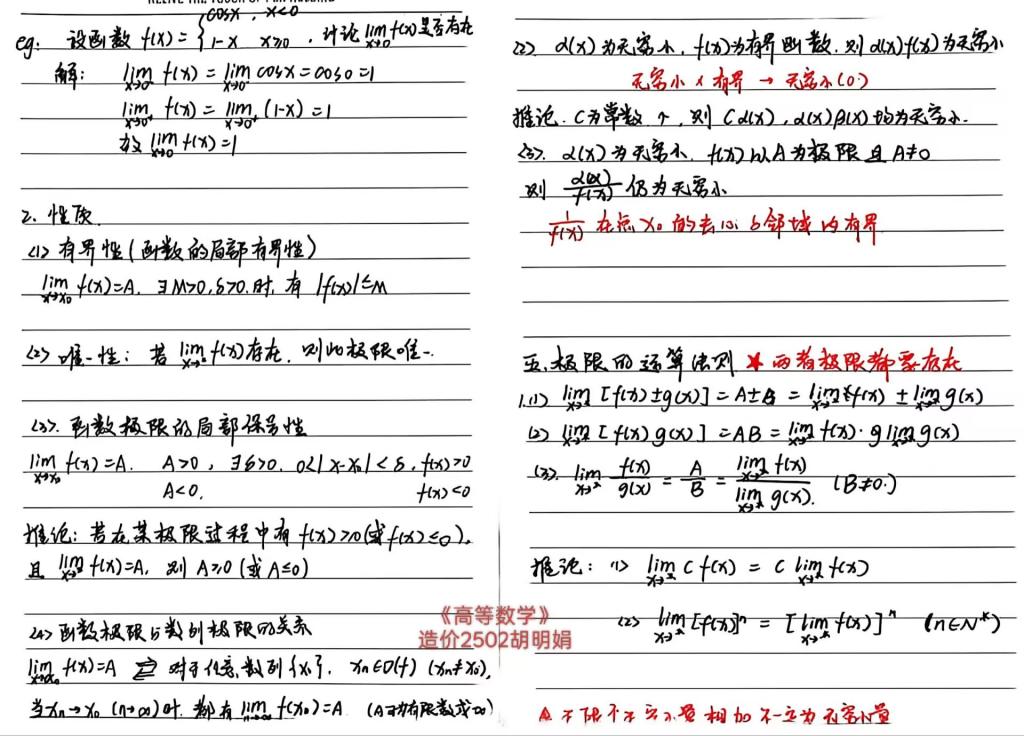 eg: 设函数 f(x)={cosx, x<0
1-x x≥0 , 讨论 lim x→0 f(x)是否存在
解: lim x→0⁻ f(x)=lim x→0⁻ cosx=cos0=1
lim x→0⁺ f(x)=lim x→0⁺ (1-x)=1
故 lim x→0 f(x)=1
2. 性质
(1) 有界性(函数的局部有界性)
lim x→x₀ f(x)=A. ∃M>0,δ>0.时,有 |f(x)|≤M
(2) 唯一性: 若 lim f(x)存在. 则此极限唯一.
(3). 函数极限的局部保号性
lim x→x₀ f(x)=A. A>0, ∃δ>0. 0<|x-x₀|<δ, f(x)>0
A<0. f(x)<0
推论: 若在某极限过程中有 f(x)≥0(或f(x)≤0),
且 lim f(x)=A, 则 A≥0 (或A≤0)
(4) 函数极限与数列极限的关系
lim x→x₀ f(x)=A ⇄ 对于任意数列{xₙ}, xₙ∈D(f) (xₙ≠x₀),
当xₙ→x₀ (n→∞)时. 都有 lim n→∞ f(xₙ)=A (A可为有限数或∞)
(2) α(x)为无穷小, f(x)为有界函数, 则 α(x)f(x)为无穷小
无穷小×有界→无穷小(0)
推论. C为常数, 则 Cα(x), α(x)β(x)均为无穷小.
(3). α(x)为无穷小. f(x)以A为极限且A≠0
则 α(x)/f(x) 仍为无穷小
1/f(x) 在点x₀的去心δ邻域内有界
五. 极限的运算法则 ★两者极限都要存在
1.(1) lim [f(x)±g(x)]=A±B=lim f(x)±lim g(x)
(2) lim [f(x)g(x)]=AB=lim f(x)·g lim g(x)
(3). lim f(x)/g(x)=A/B=lim f(x)/lim g(x). (B≠0.)
推论: (1) lim Cf(x)=C lim f(x)
(2) lim [f(x)]ⁿ=[lim f(x)]ⁿ (n∈N*)
《高等数学》
造价2502胡明娟
无穷小量相加不一定为无穷小量